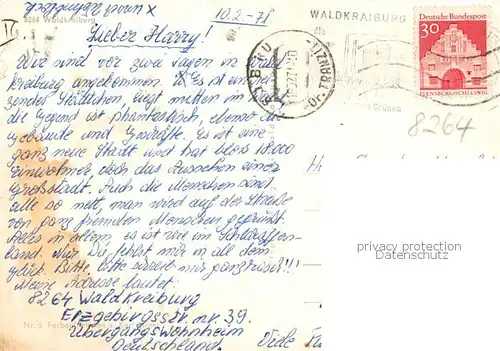 8264 Waldkraiburg
10.2.-71
Lieber Harry!
Wir sind vor zwei Tagen in Wald-
kreiburg angekommen. Es ist ein
zendes Städtchen, liegt mitten im
die Gegend ist phantastisch, ebenso die
Gebäude und Geschäfte. Es ist eine
ganz neue Stadt und hat bloss 18000
Einwohner, doch das Aussehen einer
Großstadt. Auch die Menschen sind
alle so nett, man wird auf der Straße
von ganz fremden Menschen gegrüßt.
Alles in allem, es ist wie im Schlaraffen-
land. Nur Du fehlst mir in all dem
glück. Bitte, bitte schreib mir ganz
Meine Adresse lautet:
8264 Waldkreiburg
Erzgebirgsstr. nr. 39.
Übergangswohnheim
Deutschland.
Viele
WALDKRAIBURG
die
im Grünen
Deutsche Bundespost
30
FLENSBURG/SCHLESWIG
8264
privacy protection
Datenschutz